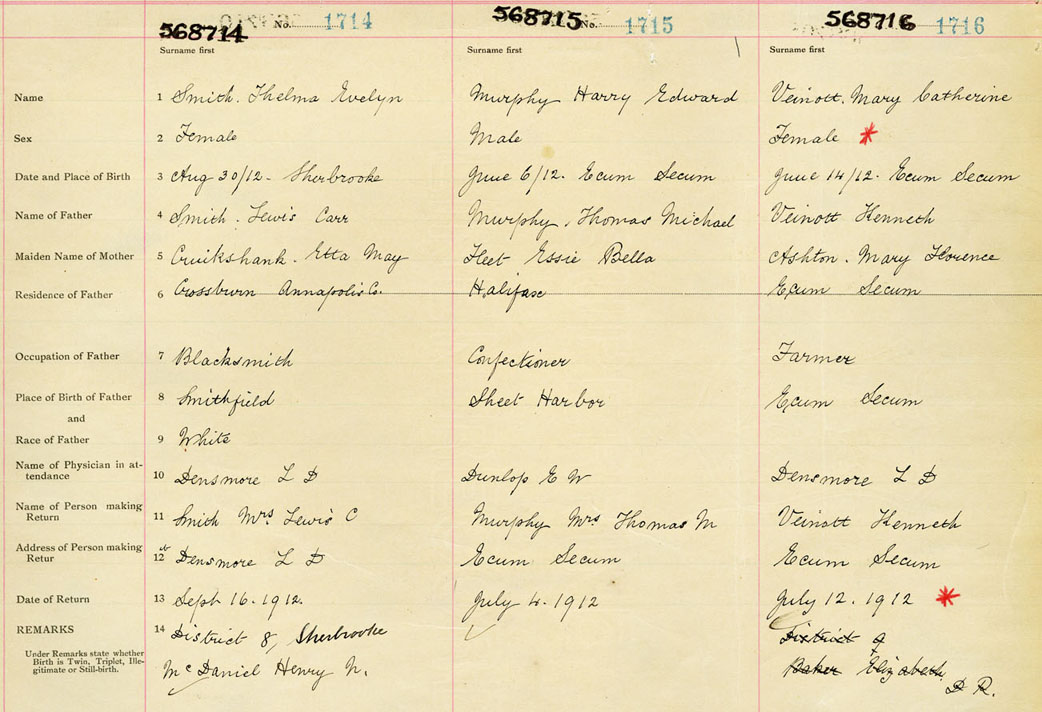 568714 No. 1714 568715 No. 1715 568716 1716
Surname first Surname first Surname first
Name 1 Smith. Thelma Evelyn Murphy Harry Edward Veinott. Mary Catherine
Sex 2 Female Male Female *
Date and Place of Birth 3 Aug 30/12 - Sherbrooke June 6/12. Ecum Secum June 14/12. Ecum Secum
Name of Father 4 Smith. Lewis Carr Murphy, Thomas Michael Veinott Kenneth
Maiden Name of Mother 5 Cruikshank. Etta May Fleet Essie Bella Ashton. Mary Florence
Residence of Father 6 Crossburn Annapolis Co. Halifax Ecum Secum
Occupation of Father 7 Blacksmith Confectioner Farmer
Place of Birth of Father 8 Smithfield Sheet Harbor Ecum Secum
and
Race of Father 9 White
Name of Physician in at- 10 Densmore L D Dunlop E W Densmore L D
tendance
Name of Person making 11 Smith Mrs Lewis C Murphy Mrs Thomas M Veinott Kenneth
Return
Address of Person making 12 Densmore L D Ecum Secum Ecum Secum
Retur
Date of Return 13 Sept 16. 1912. July 4. 1912 July 12. 1912 *
REMARKS 14 District 8, Sherbrooke District 9
Under Remarks state whether
Birth is Twin, Triplet, Ille-
gitimate or Still-birth.
McDaniel Henry N. Baker Elizabeth
D R.